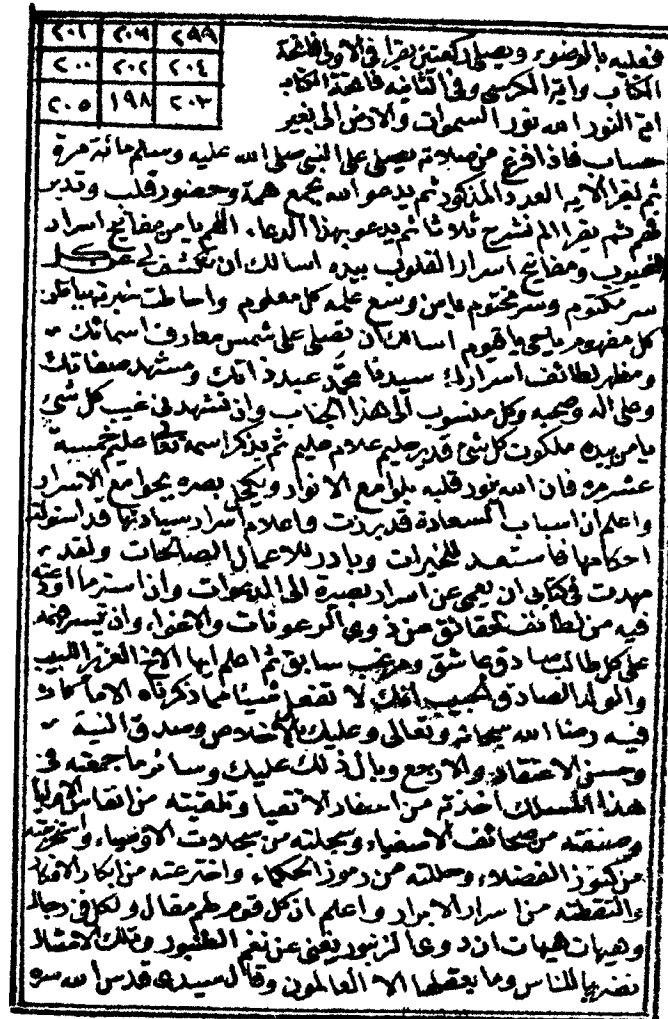 ٢٩٩ ٢٠٦ ٢٠١
٢٠٤ ٢٠٢ ٢٠٠
٢٠٣ ١٩٨ ٢٠٥
فعليه بالوضوء ويصلي ركعتين يقرا في الاولى فاتحة
الكتاب واية الكرسي وفي الثانيه فاتحة الكتاب
اية النور الله نور السموات والارض الى بغير
حساب فاذا فرغ من صلاته يصلي على النبي صلى الله عليه وسلم مائة مرة
ثم ليقرا الايه العدد المذكور ثم يدعو الله بجمع همة وحضور قلب وتدبر
فهم ثم يقرا الم نشرح ثلاثا ثم يدعو بهذا الدعاء اللهم يا من مفاتيح اسرار
الغيوب ومفاتيح اسرار القلوب بيده اسالك ان تكشف لي عن كل
سر مكتوم وسر مختوم يا من وسع علمه كل معلوم واحاطت خبرته بباطن
كل مفهوم يا حي يا قيوم اسالك ان تصلي على شمس معارف اسمائك
ومظهر لطائف اسرارك سيدنا محمد عبد ذاتك ومشهد صفاتك
وعلى اله وصحبه وكل منسوب الى هذا الجناب وان تشهدني غيب كل شئ
يا من بيده ملكوت كل شئ قدير حليم علام عليم ثم يذكر اسمه تعالى عليم خمسة
عشر مره فان الله ينور قلبه بلوامع الانوار ويكحل بصره بجوامع الاسرار
واعلم ان اسباب السعادة قد برزت واعلام اسرار سيادتها قد استولت
احكامها فاستعد للخيرات وبادر للاعمال الصالحات ولقد
مهدت في كتابي ان يعمى عن اسراره بصيرة الدعوات وان استر ما اودعته
فيه من لطائف الحقائق عن ذوي الرعونات والاغواء وان تيسر فهمه
على كل طالب صادق عاشق سابق ثم اعلم ايها الاخ العزيز اللبيب
والولد الصادق الحبيب انك لا تفعل شيئا مما ذكرناه الا ما كان
فيه رضا الله سبحانه وتعالى وعليك بالاخلاص وصدق النية
وحسن الاعتقاد والا رجع وبال ذلك عليك وسائر ما جمعته في
هذا المسلك اخذته من اسفار الاتقيا وتلقيته من انفاس الاوليا
وصنفته من صحائف الاصفياء وسجلته من سجلات الاوصياء واستخرجته
من كنوز الفضلاء وحللته من رموز الحكماء واخترعته من ابكار الافكار
والتقطته من اسرار الابرار واعلم ان كل قوم لهم مقال ولكل فن رجال
وهيهات هيهات ان دوعا الزنبور يغني عن نغم الطنبور وتلك الامثال
نضربها للناس وما يعقلها الا العالمون وقال سيدي قدس الله سره